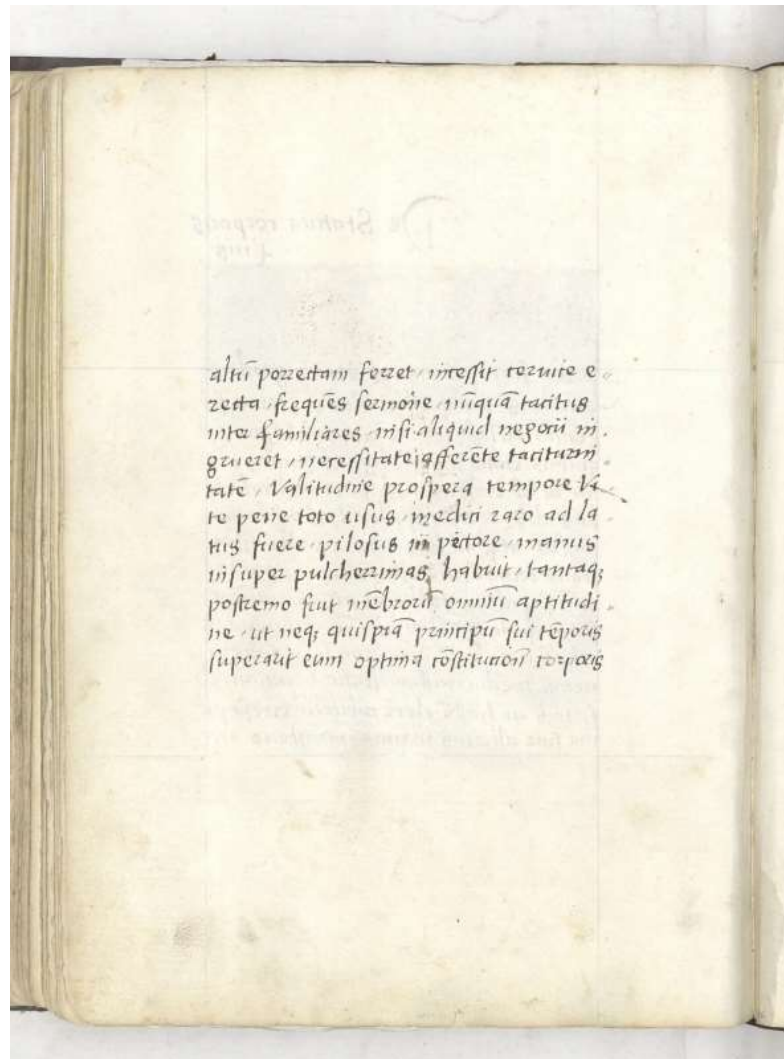 altū porrectam ferret, incessit ceruice e
recta, frequēs sermone, nūquā tacitus
inter familiares, nisi aliquid negocii in
grueret, necessitate afferēte taciturni
tatē, Valitudine prospera tempore vi
te pene toto usus, medici raro ad la
tus fuere, pilosus in pectore, manus
insuper pulcherrimas habuit, tantaq;
postremo fuit mēbrorū omniū aptitudi
ne, ut neq; quispiā principū sui tēporis
superarit eum optima cōstitucion corporis